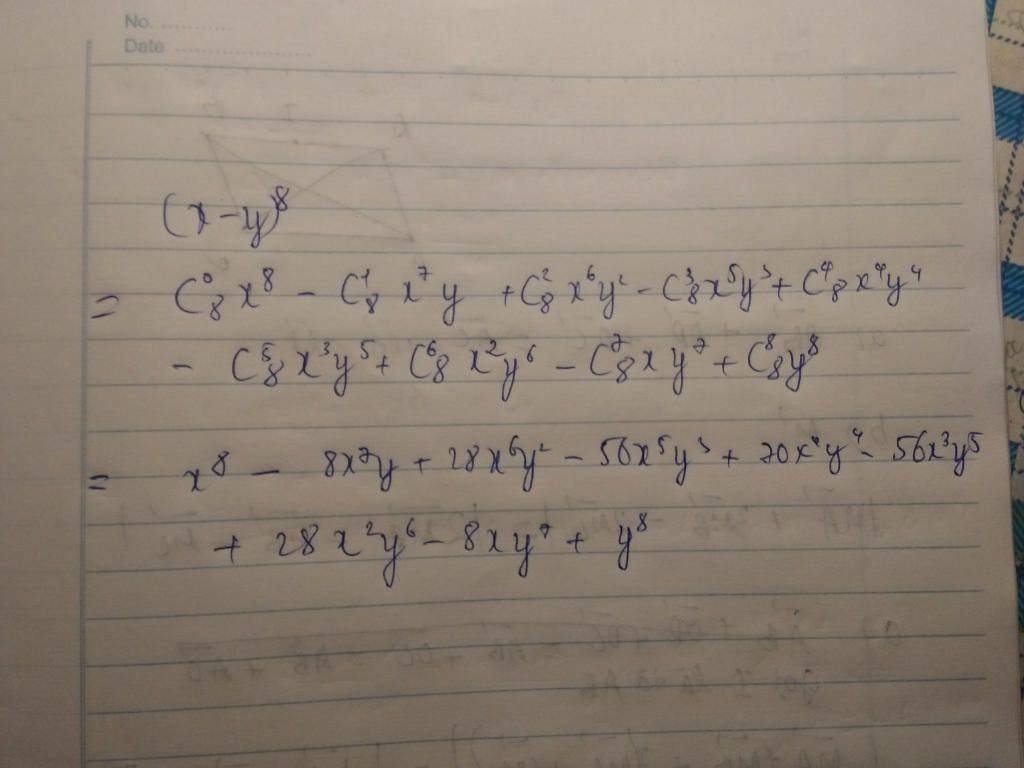 No. ............
Date ......................
(x-y)⁸
= C₈⁰x⁸ - C₈¹x⁷y + C₈²x⁶y² - C₈³x⁵y³ + C₈⁴x⁴y⁴
- C₈⁵x³y⁵ + C₈⁶x²y⁶ - C₈⁷xy⁷ + C₈⁸y⁸
= x⁸ - 8x⁷y + 28x⁶y² - 56x⁵y³ + 70x⁴y⁴ - 56x³y⁵
+ 28x²y⁶ - 8xy⁷ + y⁸